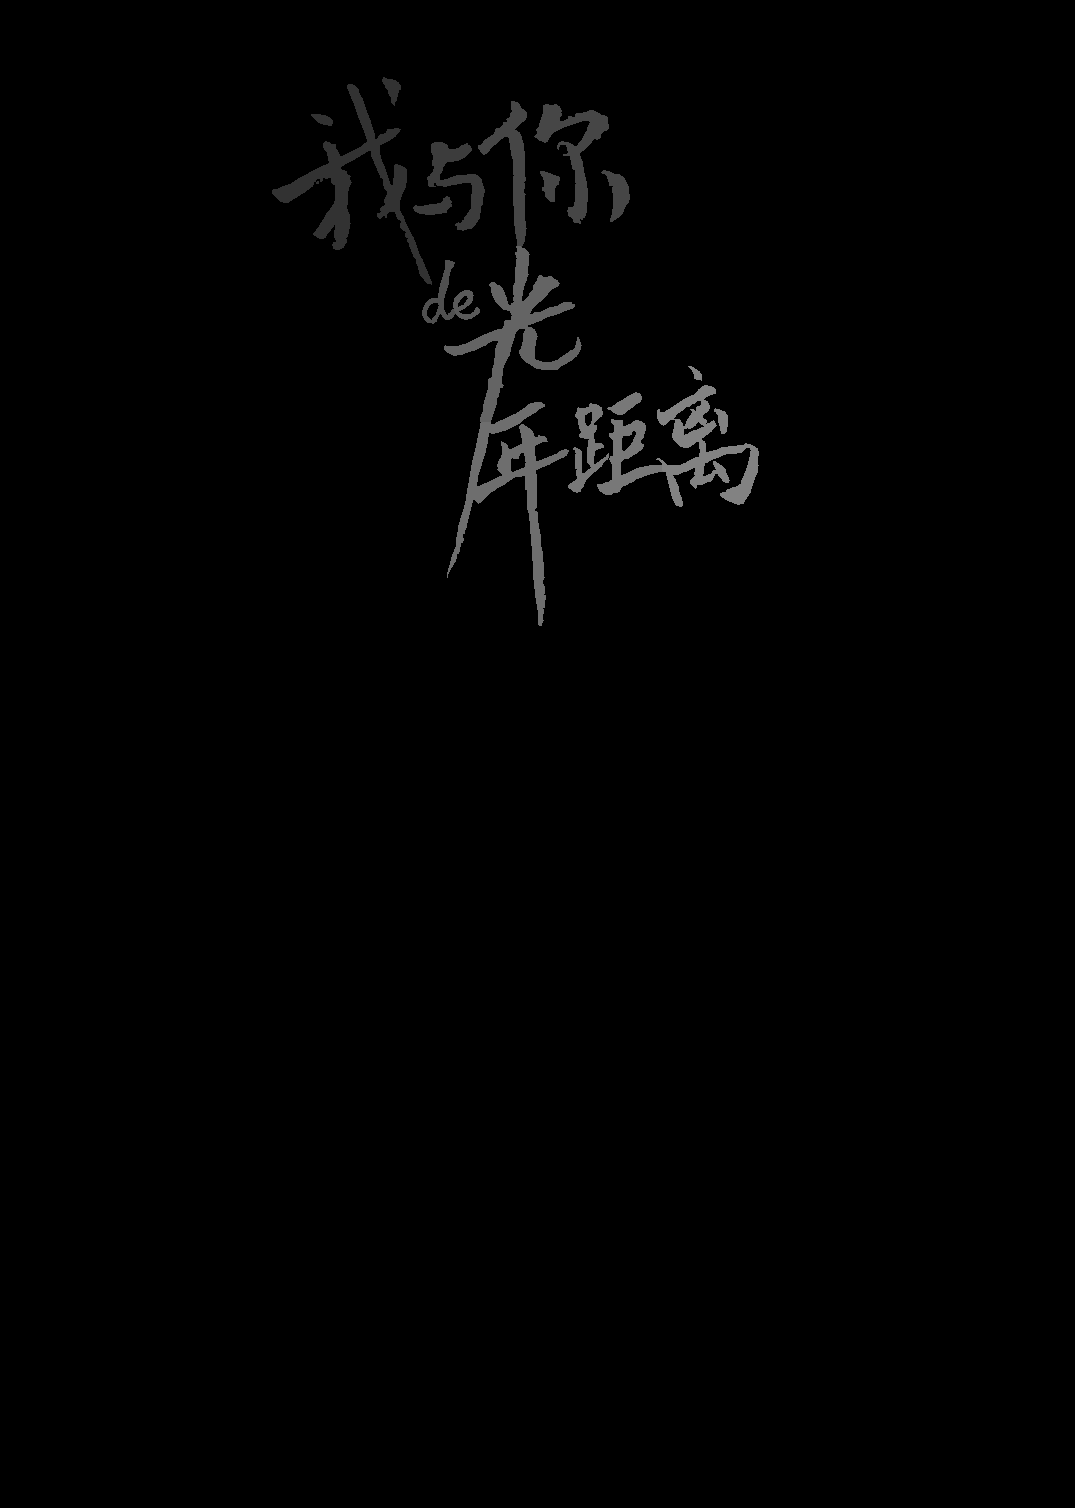 我与你
de光
年距离